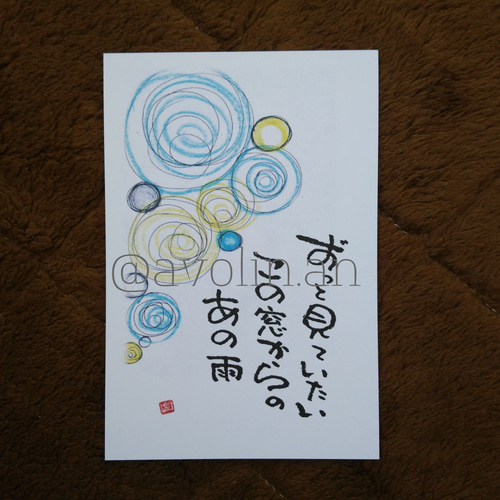 ずっと見ていたい
この窓からの
あの雨
@avolin.an